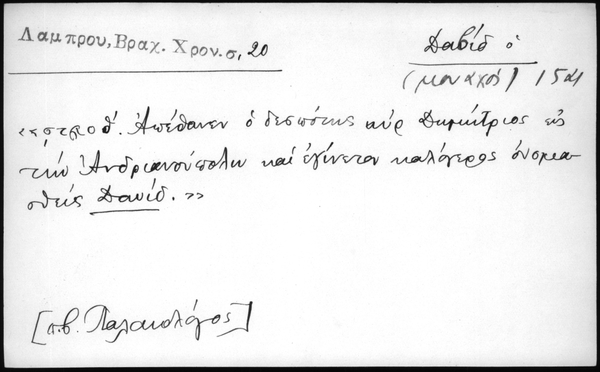 Λαμπρου, Βραχ. Χρον. σ, 20
Δαβίδ ὁ
(μοναχός) 1521
«ϛϡοθ. Ἀπέθανεν ὁ δεσπότης κύρ Δημήτριος εἰς
τήν Ἀνδριανούπολιν καί ἐγίνετον καλόγερος ὀνομα-
σθείς Δαυίδ.»
[π.β. Παλαιολόγος]